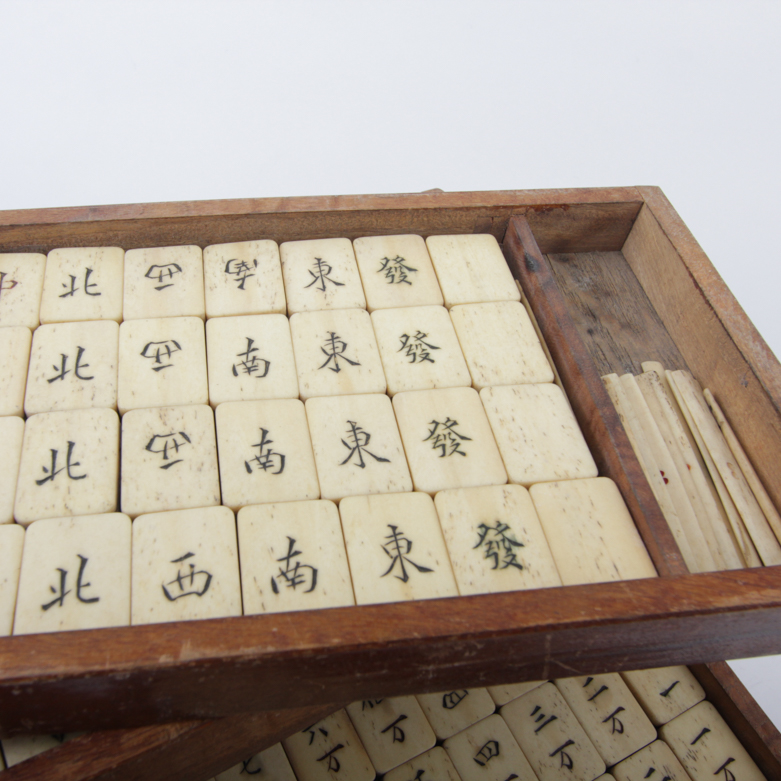 中 北 西 南 東 發
北 西 南 東 發
北 西 南 東 發
北 西 南 東 發
四 二万 一
六万 万 三万 一万
四